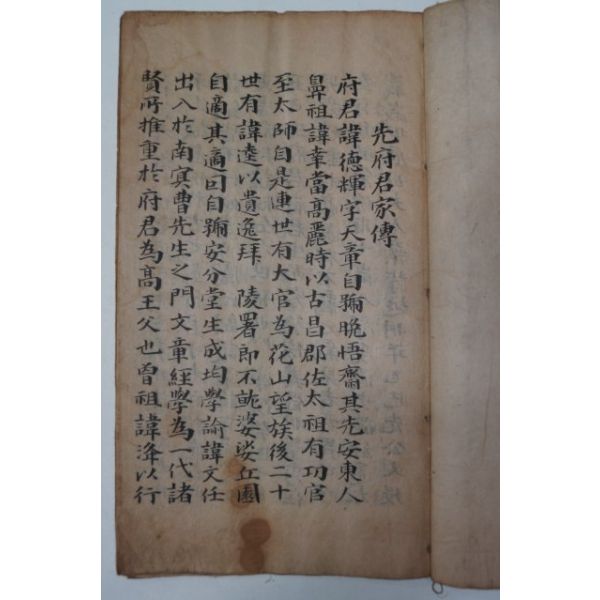 先府君家傳
府君諱德輝字天章自號晩悟齋其先安東人
鼻祖諱幸當高麗時以古昌郡佐太祖有功官
至太師自是連世有大官為花山望族後二十
世有諱逵以遺逸拜 陵署郎不就婆娑丘園
自適其適因自號安分堂生成均學諭諱文任
出入於南冥曹先生之門文章經學為一代諸
賢所推重於府君為高王父也曾祖諱洚以行